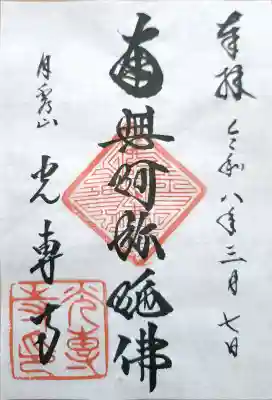 奉拝
令和八年三月七日
南無阿弥陀佛
月秀山
光專寺
光專寺印